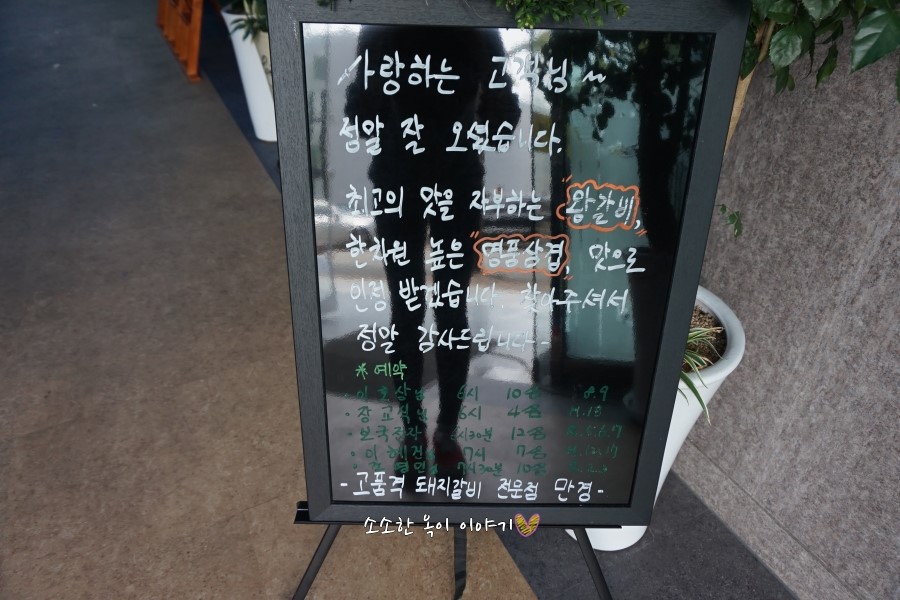 사랑하는 고객님~
정말 잘 오셨습니다.
최고의 맛을 자부하는 "왕갈비",
한차원 높은 "명품삼겹", 맛으로
인정 받겠습니다. 찾아주셔서
정말 감사드립니다-
* 예약
· 이호상님 6시 10명 8.9
· 장교식님 6시 4명 H.13
· 보국전자 6시30분 12명
· 이혜진님 7시 7명
· 7시30분 10명
- 고품격 돼지갈비 전문점 만경 -
소소한 옥이 이야기